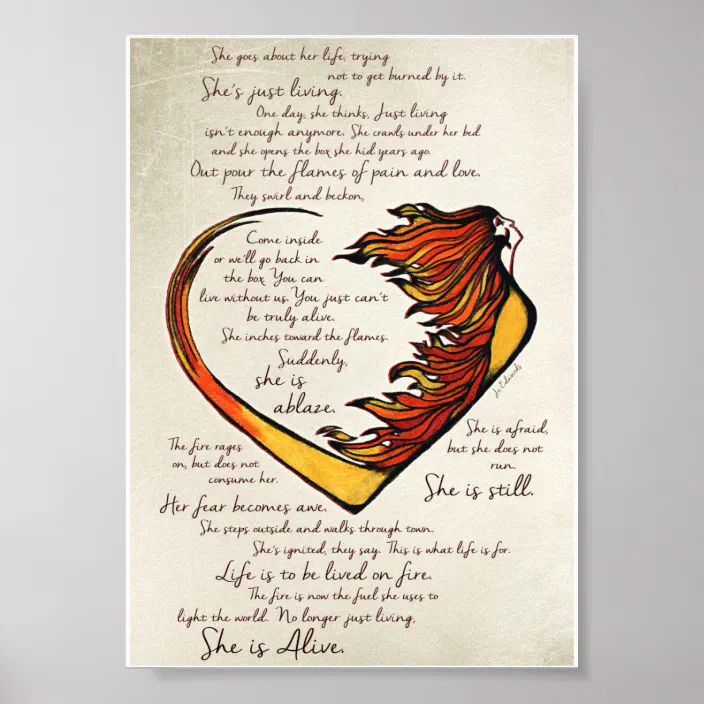 She goes about her life, trying
not to get burned by it.
She's just living.
One day, she thinks, Just living
isn't enough anymore. She crawls under her bed
and she opens the box she hid years ago.
Out pour the flames of pain and love.
They swirl and beckon,
Come inside
or we'll go back in
the box. You can
live without us. You just can't
be truly alive.
She inches toward the flames.
Suddenly,
she is
ablaze.
Jo Edwards
She is afraid,
but she does not
run.
She is still.
The fire rages
on, but does not
consume her.
Her fear becomes awe.
She steps outside and walks through town.
She's ignited, they say. This is what life is for.
Life is to be lived on fire.
The fire is now the fuel she uses to
light the world. No longer just living,
She is Alive.